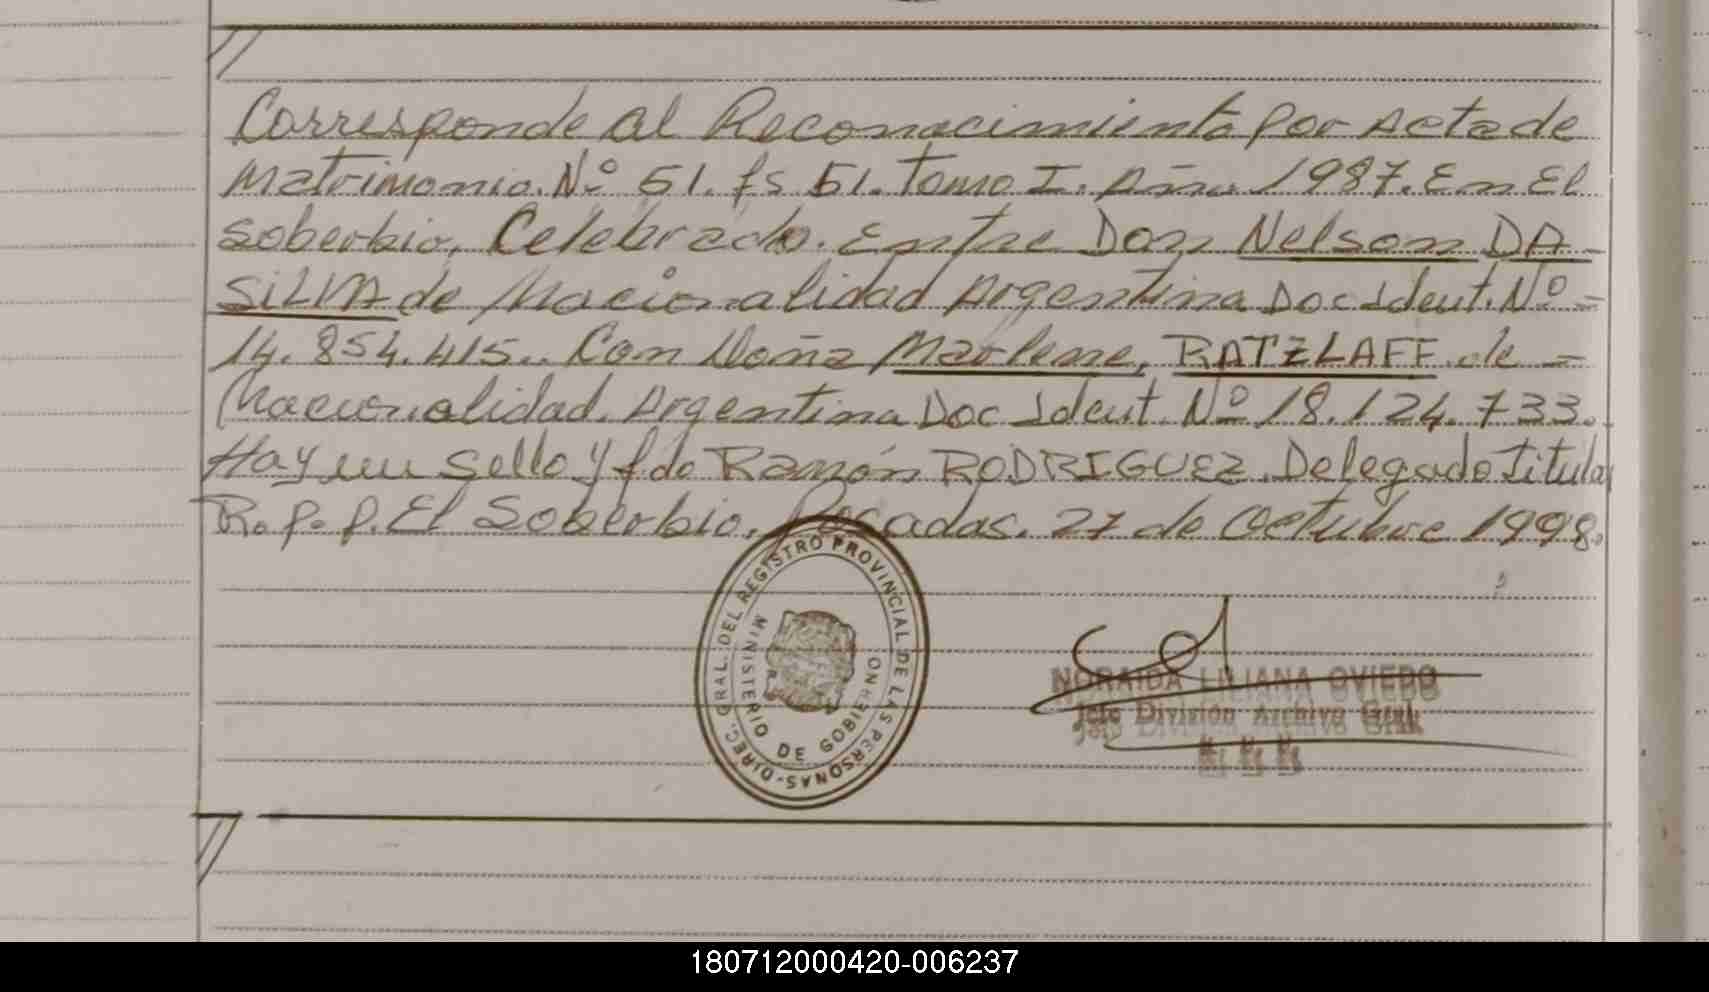 Corresponde al Reconocimiento por Acta de
Matrimonio. Nº 51. fs 51. Tomo I. Año 1987. En El
Soberbio. Celebrado. Entre Don Nelson DA
SILVA de Nacionalidad Argentina Doc Ident. Nº =
14.854.415.. Con Doña Marlene, RATZLAFF. de =
Nacionalidad. Argentina Doc Ident. Nº 18.124.733.
Hay un sello y f do Ramón RODRIGUEZ. Delegado Titular
R. p. p. El Soberbio. Posadas. 27 de Octubre 1998.
DIREC. GRAL. DEL REGISTRO PROVINCIAL DE LAS PERSONAS-
MINISTERIO DE GOBIERNO
NORAIDA LILIANA OVIEDO
Jefe División Archivo Gral.
180712000420-006237